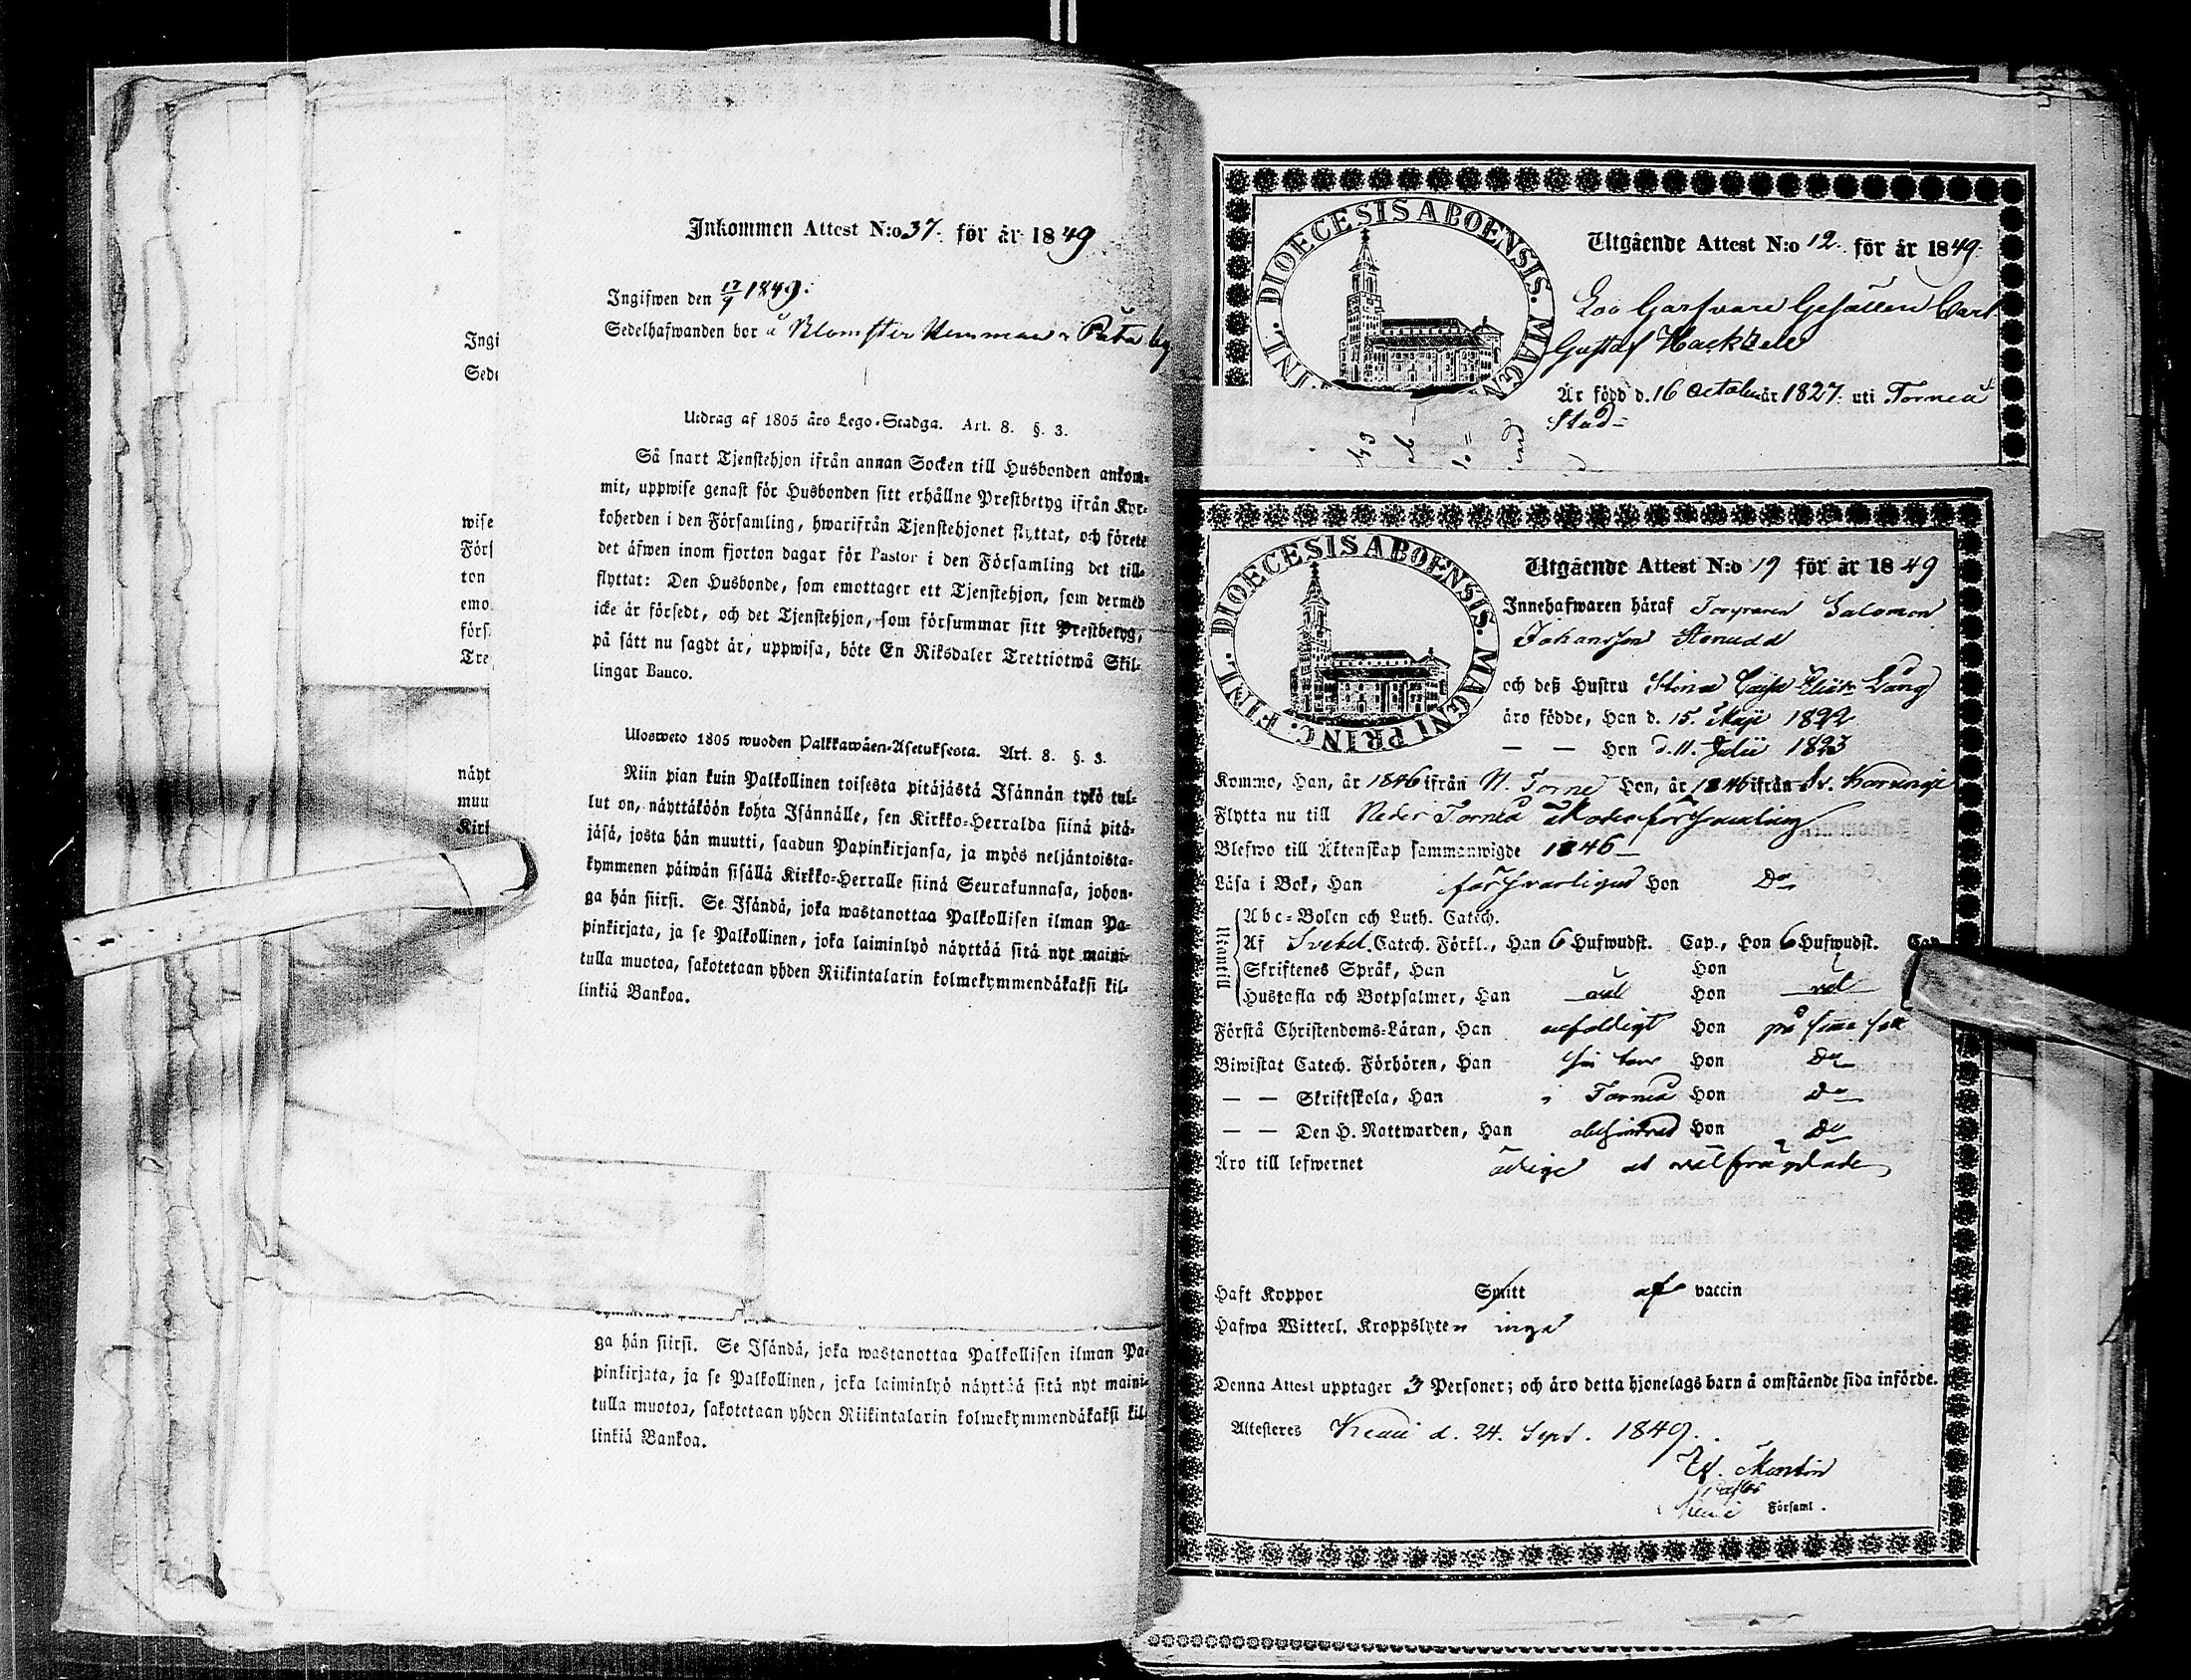 Inkommen Attest N:o 37. för år 1849
Ingifwen den 17/9 1849.
Sedelhafwanden bor å Klomster Hemman
Ingi
Sede
Utdrag af 1805 års Lego-Stadga. Art. 8. §. 3.
Så snart Tjenstehjon ifrån annan Socken till Husbonden ankom-
mit, uppwise genast för Husbonden sitt erhållne Prestbetyg ifrån Kyr-
koherden i den Församling, hwarifrån Tjenstehjonet flyttat, och förete
det äfwen inom fjorton dagar för Pastor i den Församling det till-
flyttat: Den Husbonde, som emottager ett Tjenstehjon, som dermed
icke är försedt, och det Tjenstehjon, som försummar sitt Prestbetyg,
på sätt nu sagdt är, uppwisa, böte En Riksdaler Trettiotwå Skil-
lingar Banco.
wise
Förs
ton
emo
förs
Tre
Ulosweto 1805 wuoden Palkkawäen-Asetuksesta. Art. 8. §. 3.
Niin pian kuin Palkollinen toisesta pitäjästä Isännän tykö tul-
lut on, näyttäköön kohta Isännälle, sen Kirkko-Herralda siinä pitä-
jäsä, josta hän muutti, saadun Papinkirjansa, ja myös neljäntoista-
kymmenen päiwän sisällä Kirkko-Herralle siinä Seurakunnasa, johon-
ga hän siirsi. Se Isändä, joka wastanottaa Palkollisen ilman Pa-
pinkirjata, ja se Palkollinen, joka laiminlyö näyttää sitä nyt maini-
tulla muotoa, sakotetaan yhden Riikintalarin kolmekymmendäkaksi kil-
linkiä Bankoa.
näyt
muu
Kirk
ga hän siirsi. Se Isändä, joka wastanottaa Palkollisen ilman Pa-
pinkirjata, ja se Palkollinen, joka laiminlyö näyttää sitä nyt maini-
tulla muotoa, sakotetaan yhden Riikintalarin kolmekymmendäkaksi kil-
linkiä Bankoa.
DIOECESIS ABOENSIS. MAGN FINL.
Utgående Attest N:o 12. för år 1849.
Garfvare Gesällen Carl
Gustaf Hackzell
Är född d. 16 October år 1827. uti Torneå
Stad
DIOECESIS ABOENSIS. MAGNI PRINC. FINL.
Utgående Attest N:o 19 för år 1849
Innehafwaren häraf Torparen Salomon
Johansson Stenudd
och deß Hustru Stina Cajsa Lång
äro födde, Han d. 15. Maji 1822
— — Hon d. 11. Julii 1823
Kommo, Han, år 1846 ifrån N. Torne Hon, år 1846 ifrån Sv. Karungi
Flytta nu till Neder Torneå Moderförsamling
Blefwo till Äktenskap sammanwigde 1846
Läsa i Bok, Han försvarligus Hon Do
Utantill
Abc-Boken och Luth. Catech.
Af Svebel. Catech. Förkl., Han 6 Hufwudst. Cap., Hon 6 Hufwudst. Cap
Skriftenes Språk, Han Hon
Hustafla och Botpsalmer, Han väl Hon väl
Förstå Christendoms-Läran, Han enfaldigt Hon på samma sätt
Biwistat Catech. Förhören, Han Hon Do
— — Skriftskola, Han i Torneå Hon Do
— — Den H. Nattwarden, Han obehindrad Hon Do
Äro till lefwernet ärlige at välfrägdade
Haft Koppor Smitt af vaccin
Hafwa Witterl. Kroppslyten inga
Denna Attest upptager 3 Personer; och äro detta hjonelags barn å omstående sida införde.
Attesteres Kemi d. 24. Sept. 1849.
Montin
Pastor
Kemi Församl.